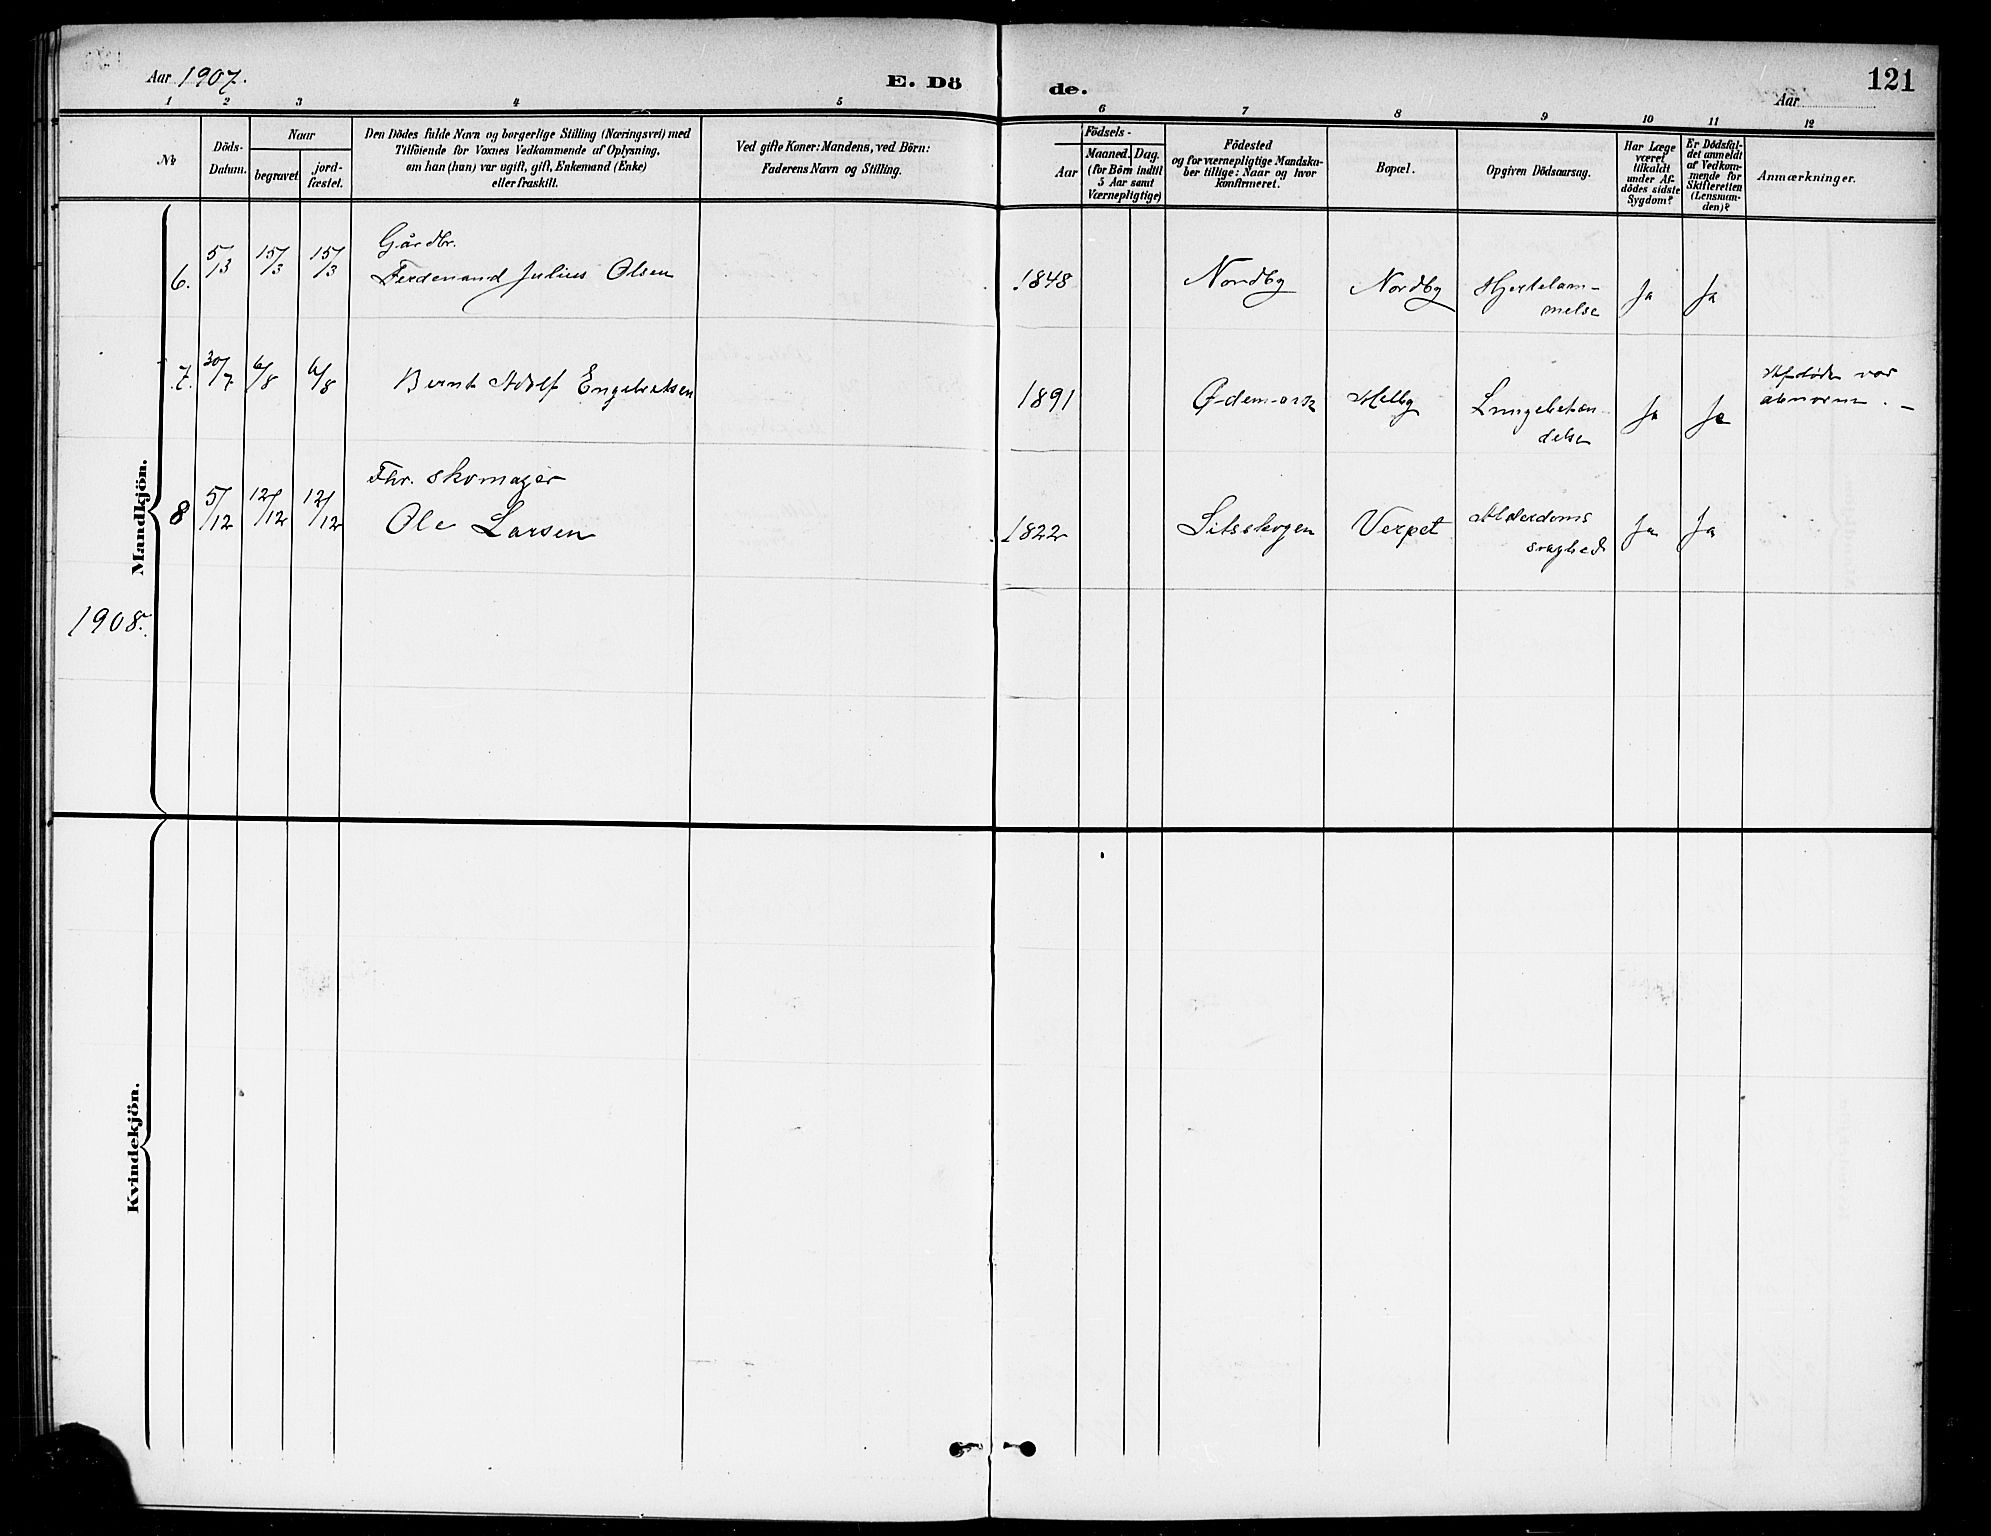 Aar 1907.
E. Dö
de.
121
Aar
1 2 3 4 5 6 7 8 9 10 11 12
No
Döds-
Datum.
Naar
begravet.
jord-
fæstet.
Den Dödes fulde Navn og borgerlige Stilling (Næringsvei) med
Tilföiende for Voxnes Vedkommende af Oplysning,
om han (hun) var ugift, gift, Enkemand (Enke)
eller fraskilt.
Ved gifte Koner: Mandens, ved Börn:
Faderens Navn og Stilling.
Födsels-
Aar
Maaned.
Dag.
(for Börn indtil
5 Aar samt
Værnepligtige)
Födested
og for værnepligtige Mandska-
ber tillige: Naar og hvor
konfirmeret.
Bopæl.
Opgiven Dödsaarsag.
Har Læge
været
tilkaldt
under Af-
dödes sidste
Sygdom?
Er Dödsfal-
det anmeldt
af Vedkom-
mende for
Skifteretten
(Lensman-
den)?
Anmærkninger.
Mandkjön.
6. 5/3 15/3 15/3 Gårdbr.
Ferdenand Julius Olsen 1848 Nordby Nordby Hjertelam-
melse Ja Ja
7. 30/7 6/8 6/8 Bernt Adolf Engebretsen 1891 Ødemark Melby Lungebetæn-
delse Ja Ja Afdöde var
abnorm. –
8 5/12 12/12 12/12 Fhr. skomager
Ole Larsen 1822 Sitsskogen Verpet Alderdoms
svaghed Ja Ja
1908.
Kvindekjön.